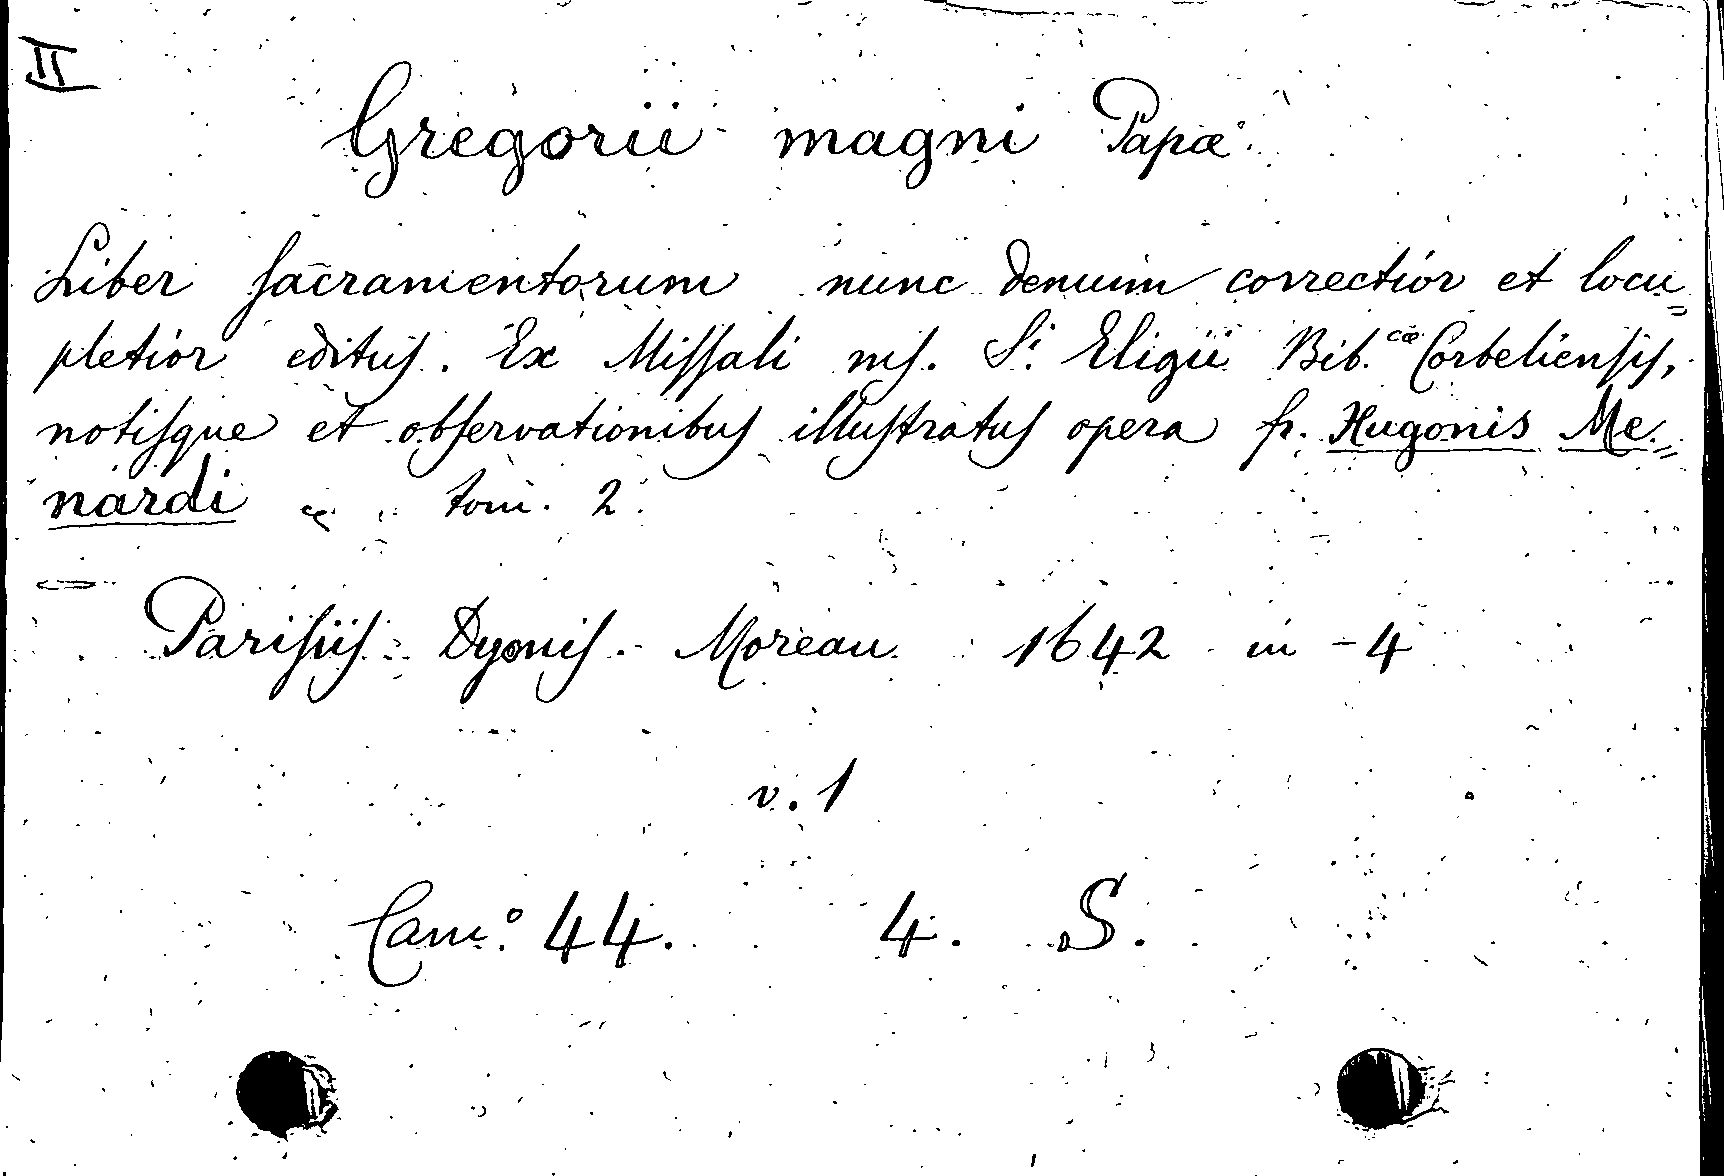 II
Gregorii magni Papæ
Liber sacramentorum nunc denuum correctior et locu=
pletior editus. Ex Missali ms. Si Eligii Bib.cæ Corbeliensis,
notisque et observationibus illustratus opera fr. Hugonis Me=
nardi tom. 2.
Parisiis Dyonis. Moreau 1642 in-4
v. 1
Cam.° 44. 4. S.